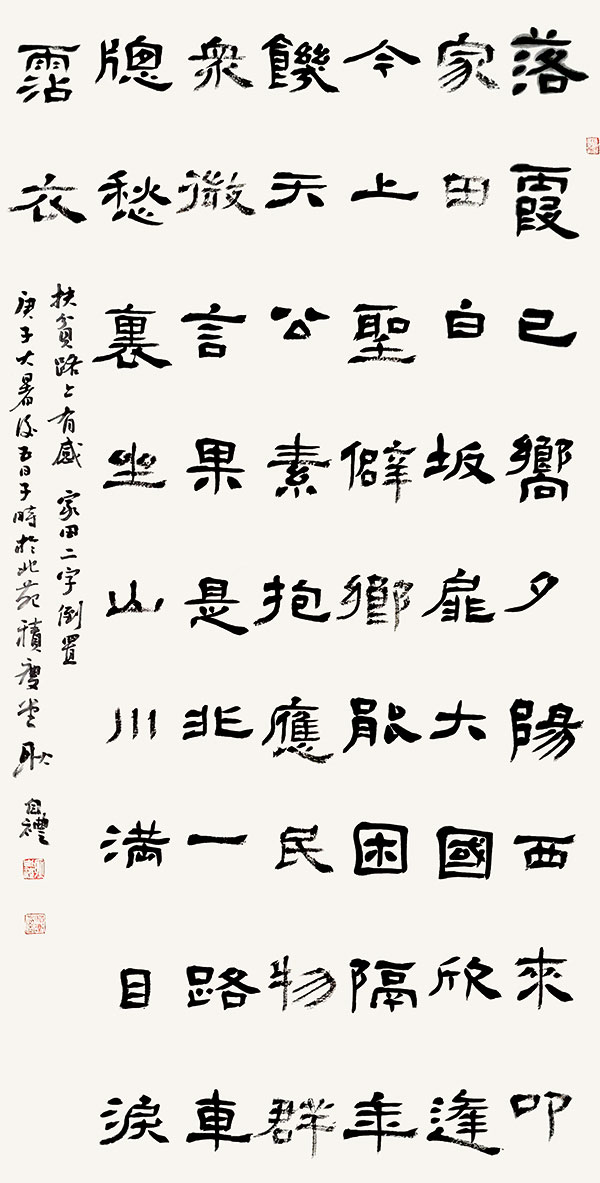 落霞已嚮夕陽西來叩
家田白坂扉大國欣逢
今上聖僻鄉脫困隔年
饑天公素抱應民物群
衆微言果是非一路車
牕愁裏坐山川滿目淚
霑衣
扶貧路上有感 家田二字倒置
庚子大暑後五日子時於北苑積堂 耿自禮